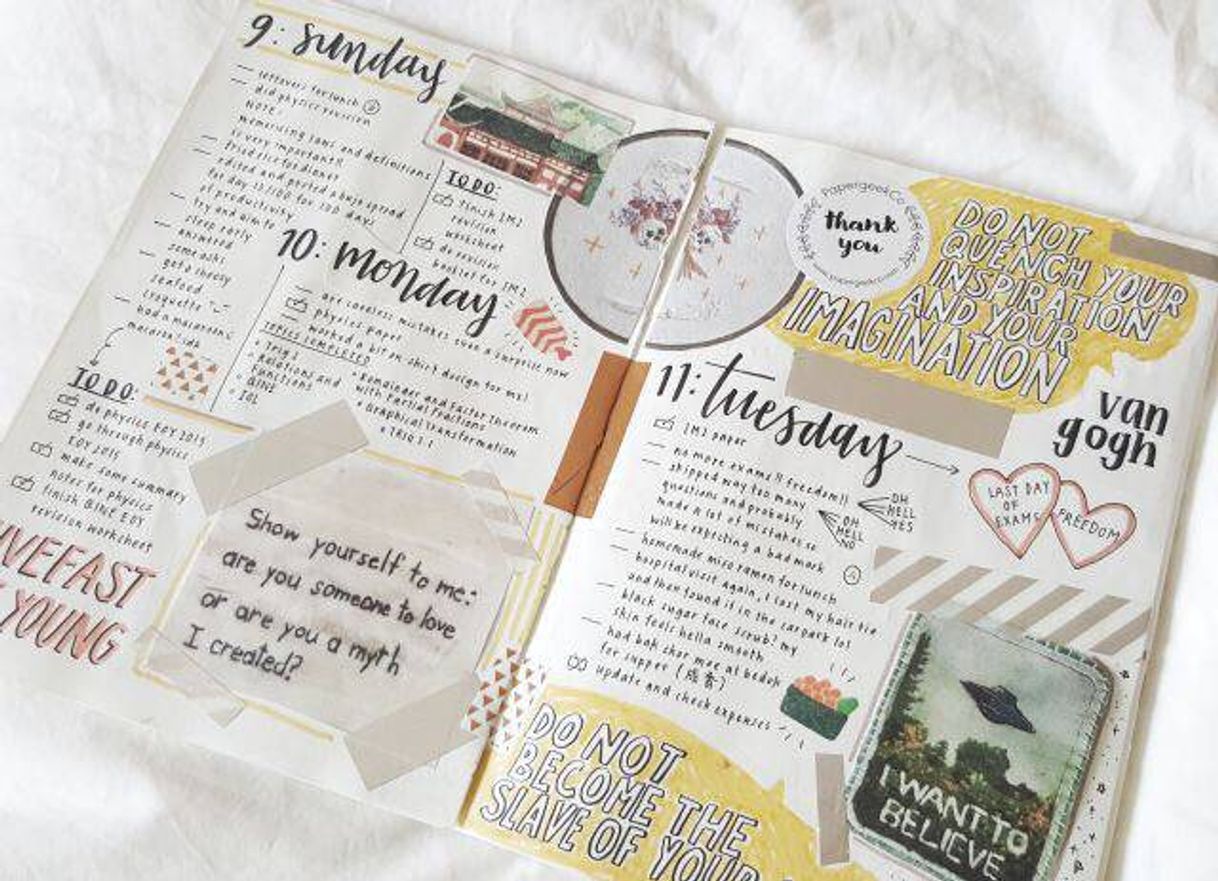 9: sunday
— leftovers for lunch
— did physics revision
NOTE:
memorising laws and definitions
is very important!!
— fried rice for dinner
— edited and posted a bujo spread
for day 12/100 for 100 days
of productivity
— try and aim to
sleep early
— answered
some asks
— got a cheesy
seafood
croquette
— had a macarons
macaroni dish
TO DO:
finish IM2
revision
worksheet
do revision
booklet for IM2
TO DO:
do physics EOY 2015
go through physics
EOY 2015
make some summary
notes for physics
finish QINE EOY
revision worksheet
LIVEFAST
YOUNG
10: monday
— are careless mistakes even a surprise now
physics paper
— worked a bit on shirt design for ms!
TOPICS COMPLETED
• Trig 1
• Relations and
Functions
• QINE
• IOL
• Remainder and Factor Theorem
with Partial Fractions
• Graphical Transformation
• TRIG 1
Show yourself to me:
are you someone to love
or are you a myth
I created?
PapergeekCo
thank
you
www.papergeekco.com
DO NOT
QUENCH YOUR
INSPIRATION
AND YOUR
IMAGINATION
van
gogh
11: tuesday
IM2 paper
— no more exams!! freedom!!
— skipped way too many
questions and probably
made a lot of mistakes so
will be expecting a bad mark
— homemade miso ramen for lunch
— hospital visit again, I lost my hair tie
and then found it in the carpark lol
— black sugar face scrub! my
skin feels hella smooth
— had bak chor mee at bedok
for supper
update and check expenses
OH
HELL
YES
OH
HELL
NO
LAST DAY
OF
EXAMS
FREEDOM
I WANT TO
BELIEVE
DO NOT
BECOME THE
SLAVE OF YOUR